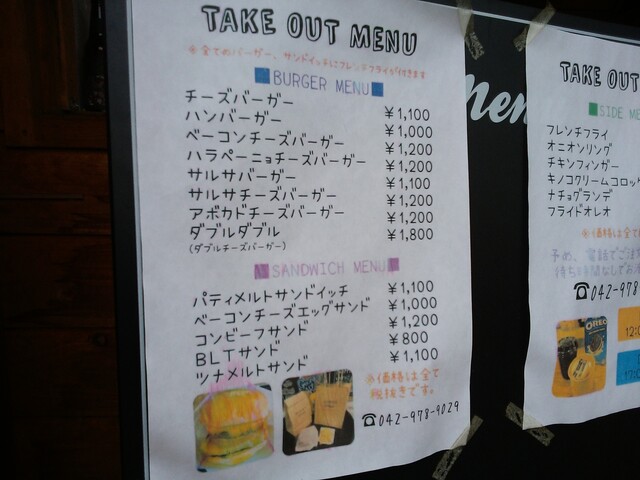 TAKE OUT MENU
※全てのバーガー、サンドイッチにフレンチフライが付きます
■BURGER MENU■
チーズバーガー ¥1,100
ハンバーガー ¥1,000
ベーコンチーズバーガー ¥1,200
ハラペーニョチーズバーガー ¥1,200
サルサバーガー ¥1,100
サルサチーズバーガー ¥1,200
アボカドチーズバーガー ¥1,200
ダブルダブル ¥1,800
(ダブルチーズバーガー)
■SANDWICH MENU■
パティメルトサンドイッチ ¥1,100
ベーコンチーズエッグサンド ¥1,000
コンビーフサンド ¥1,200
BLTサンド ¥800
ツナメルトサンド ¥1,100
※価格は全て
税抜きです。
☎042-978-9029
men
TAKE OUT
■SIDE ME
フレンチフライ
オニオンリング
チキンフィンガー
キノコクリームコロッ
ナチョグランデ
フライドオレオ
※価格は全
予め、電話でご注
待ち時間なしでお
☎042-978
OREO